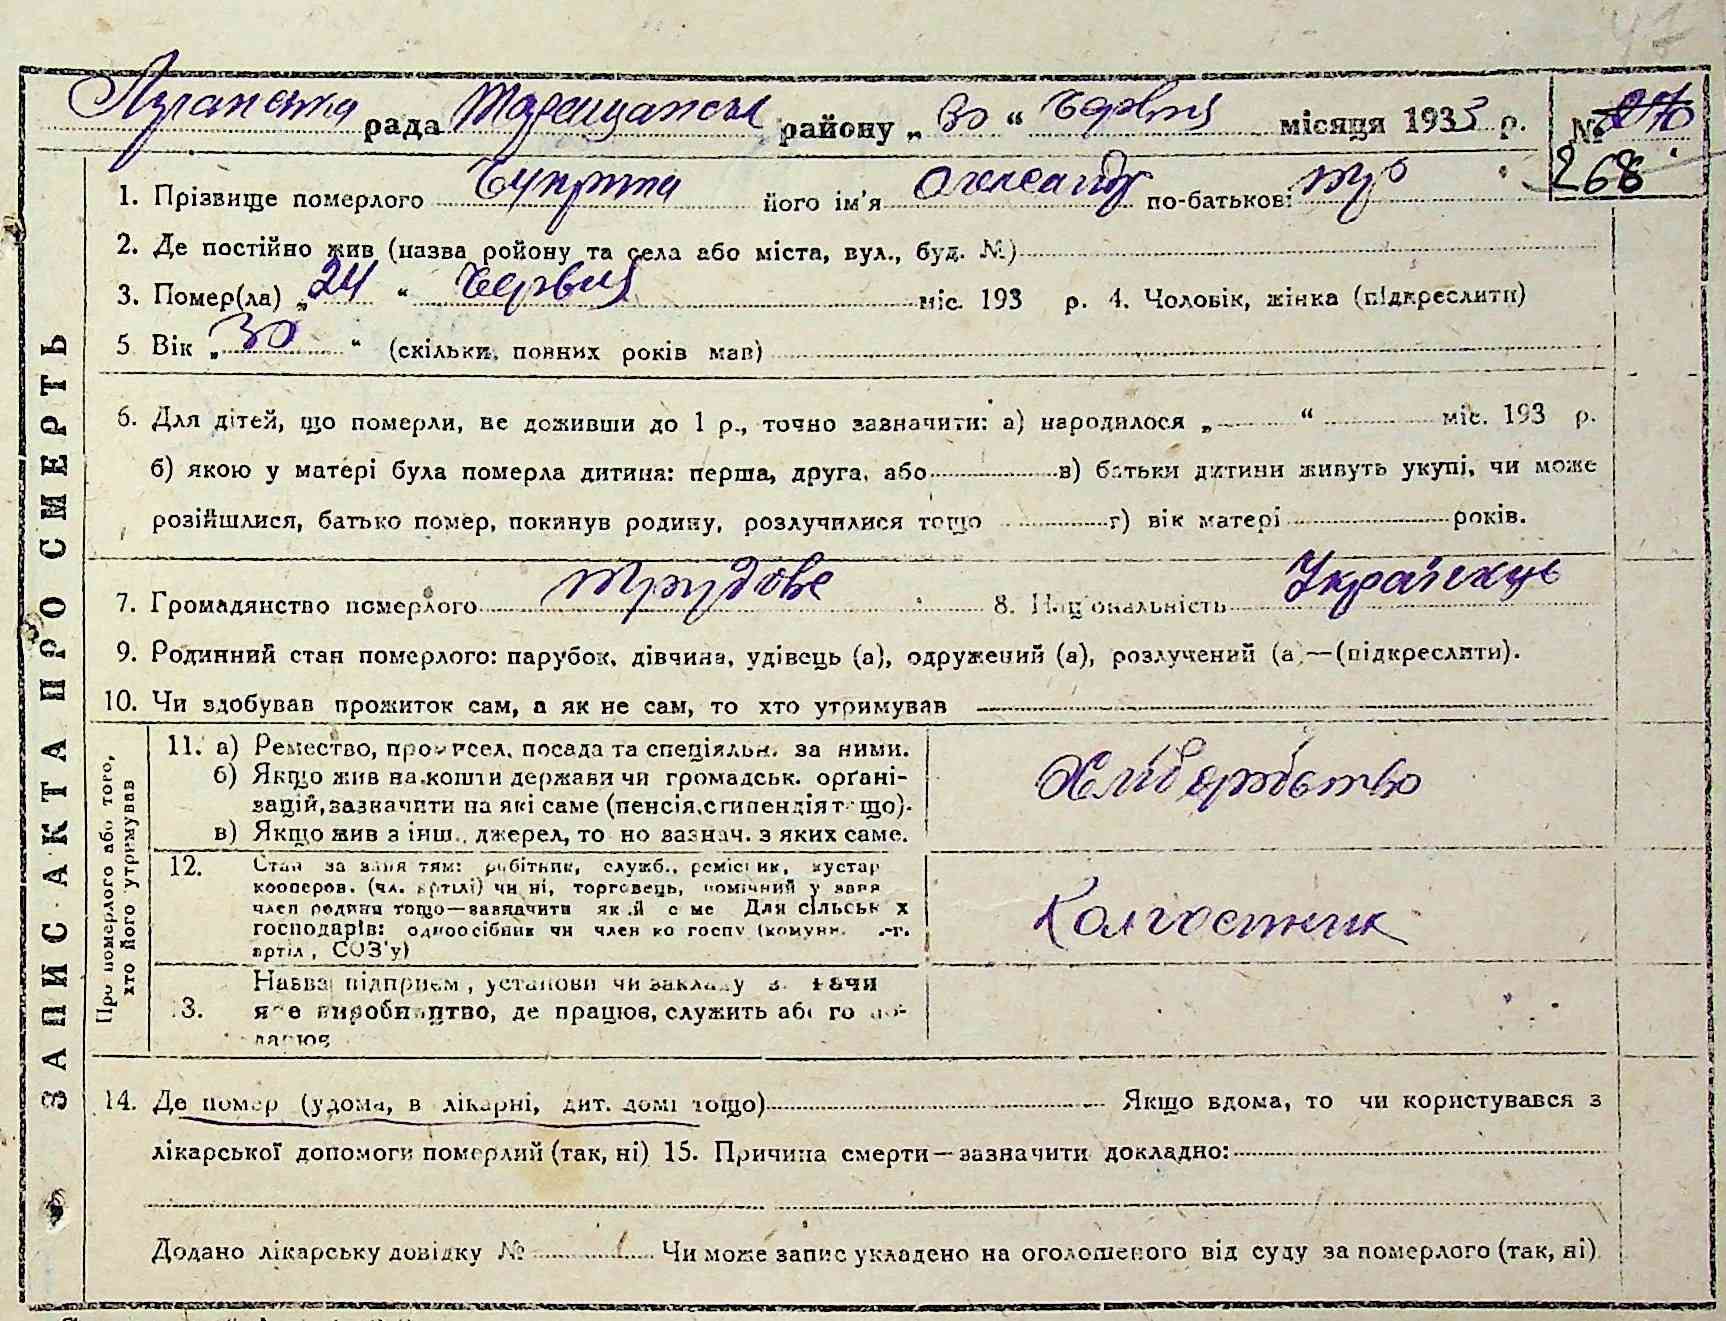 41
Луганська рада Тараща́нськ району „ 30 “ Червня місяця 1933 р. № 276
268
1. Прізвище померлого його ім'я Олександр по-батькові:
2. Де постійно жив (назва ройону та села або міста, вул., буд. №)
3. Помер(ла) „ 24 “ Червня міс. 193 р. 4. Чоловік, жінка (підкреслити)
5 Вік „ 30 “ (скільки, повних років мав)
6. Для дітей, що померли, не доживши до 1 р., точно зазначити: а) народилося „ “ міс. 193 р.
б) якою у матері була померла дитина: перша, друга, або в) батьки дитини живуть укупі, чи може
розійшлися, батько помер, покинув родину, розлучилися тощо г) вік матері років.
7. Громадянство померлого Трудове 8. Національність Українець
9. Родинний стан померлого: парубок, дівчина, удівець (а), одружений (а), розлучений (а)—(підкреслити).
10. Чи здобував прожиток сам, а як не сам, то хто утримував
ЗАПИС АКТА ПРО СМЕРТЬ
Про померлого або того,
хто його утримував
11. а) Ремество, промисел, посада та спеціяльн. за ними.
б) Якщо жив на кошти держави чи громадськ. орґані-
зацій, зазначити на які саме (пенсія, стипендія тощо).
в) Якщо жив з інш. джерел, то но зазнач. з яких саме.
Хліборобство
12. Стан за заняттям: робітник, служб., ремісник, кустар
кооперов. (чл. артілі) чи ні, торговець, помічний у заня
член родини тощо—зазначити який саме Для сільськ х
господарів: одноосібник чи член ко госпу (комуни, .-г.
артіл, СОЗ'у)
Колгоспник
13. Назва підприєм, установи чи закладу з
яке виробництво, де працює, служить або го
14. Де помер (удома, в лікарні, дит. домі тощо) Якщо вдома, то чи користувався з
лікарської допомоги померлий (так, ні) 15. Причина смерти—зазначити докладно:
Додано лікарську довідку № Чи може запис укладено на оголошеного від суду за померлого (так, ні)